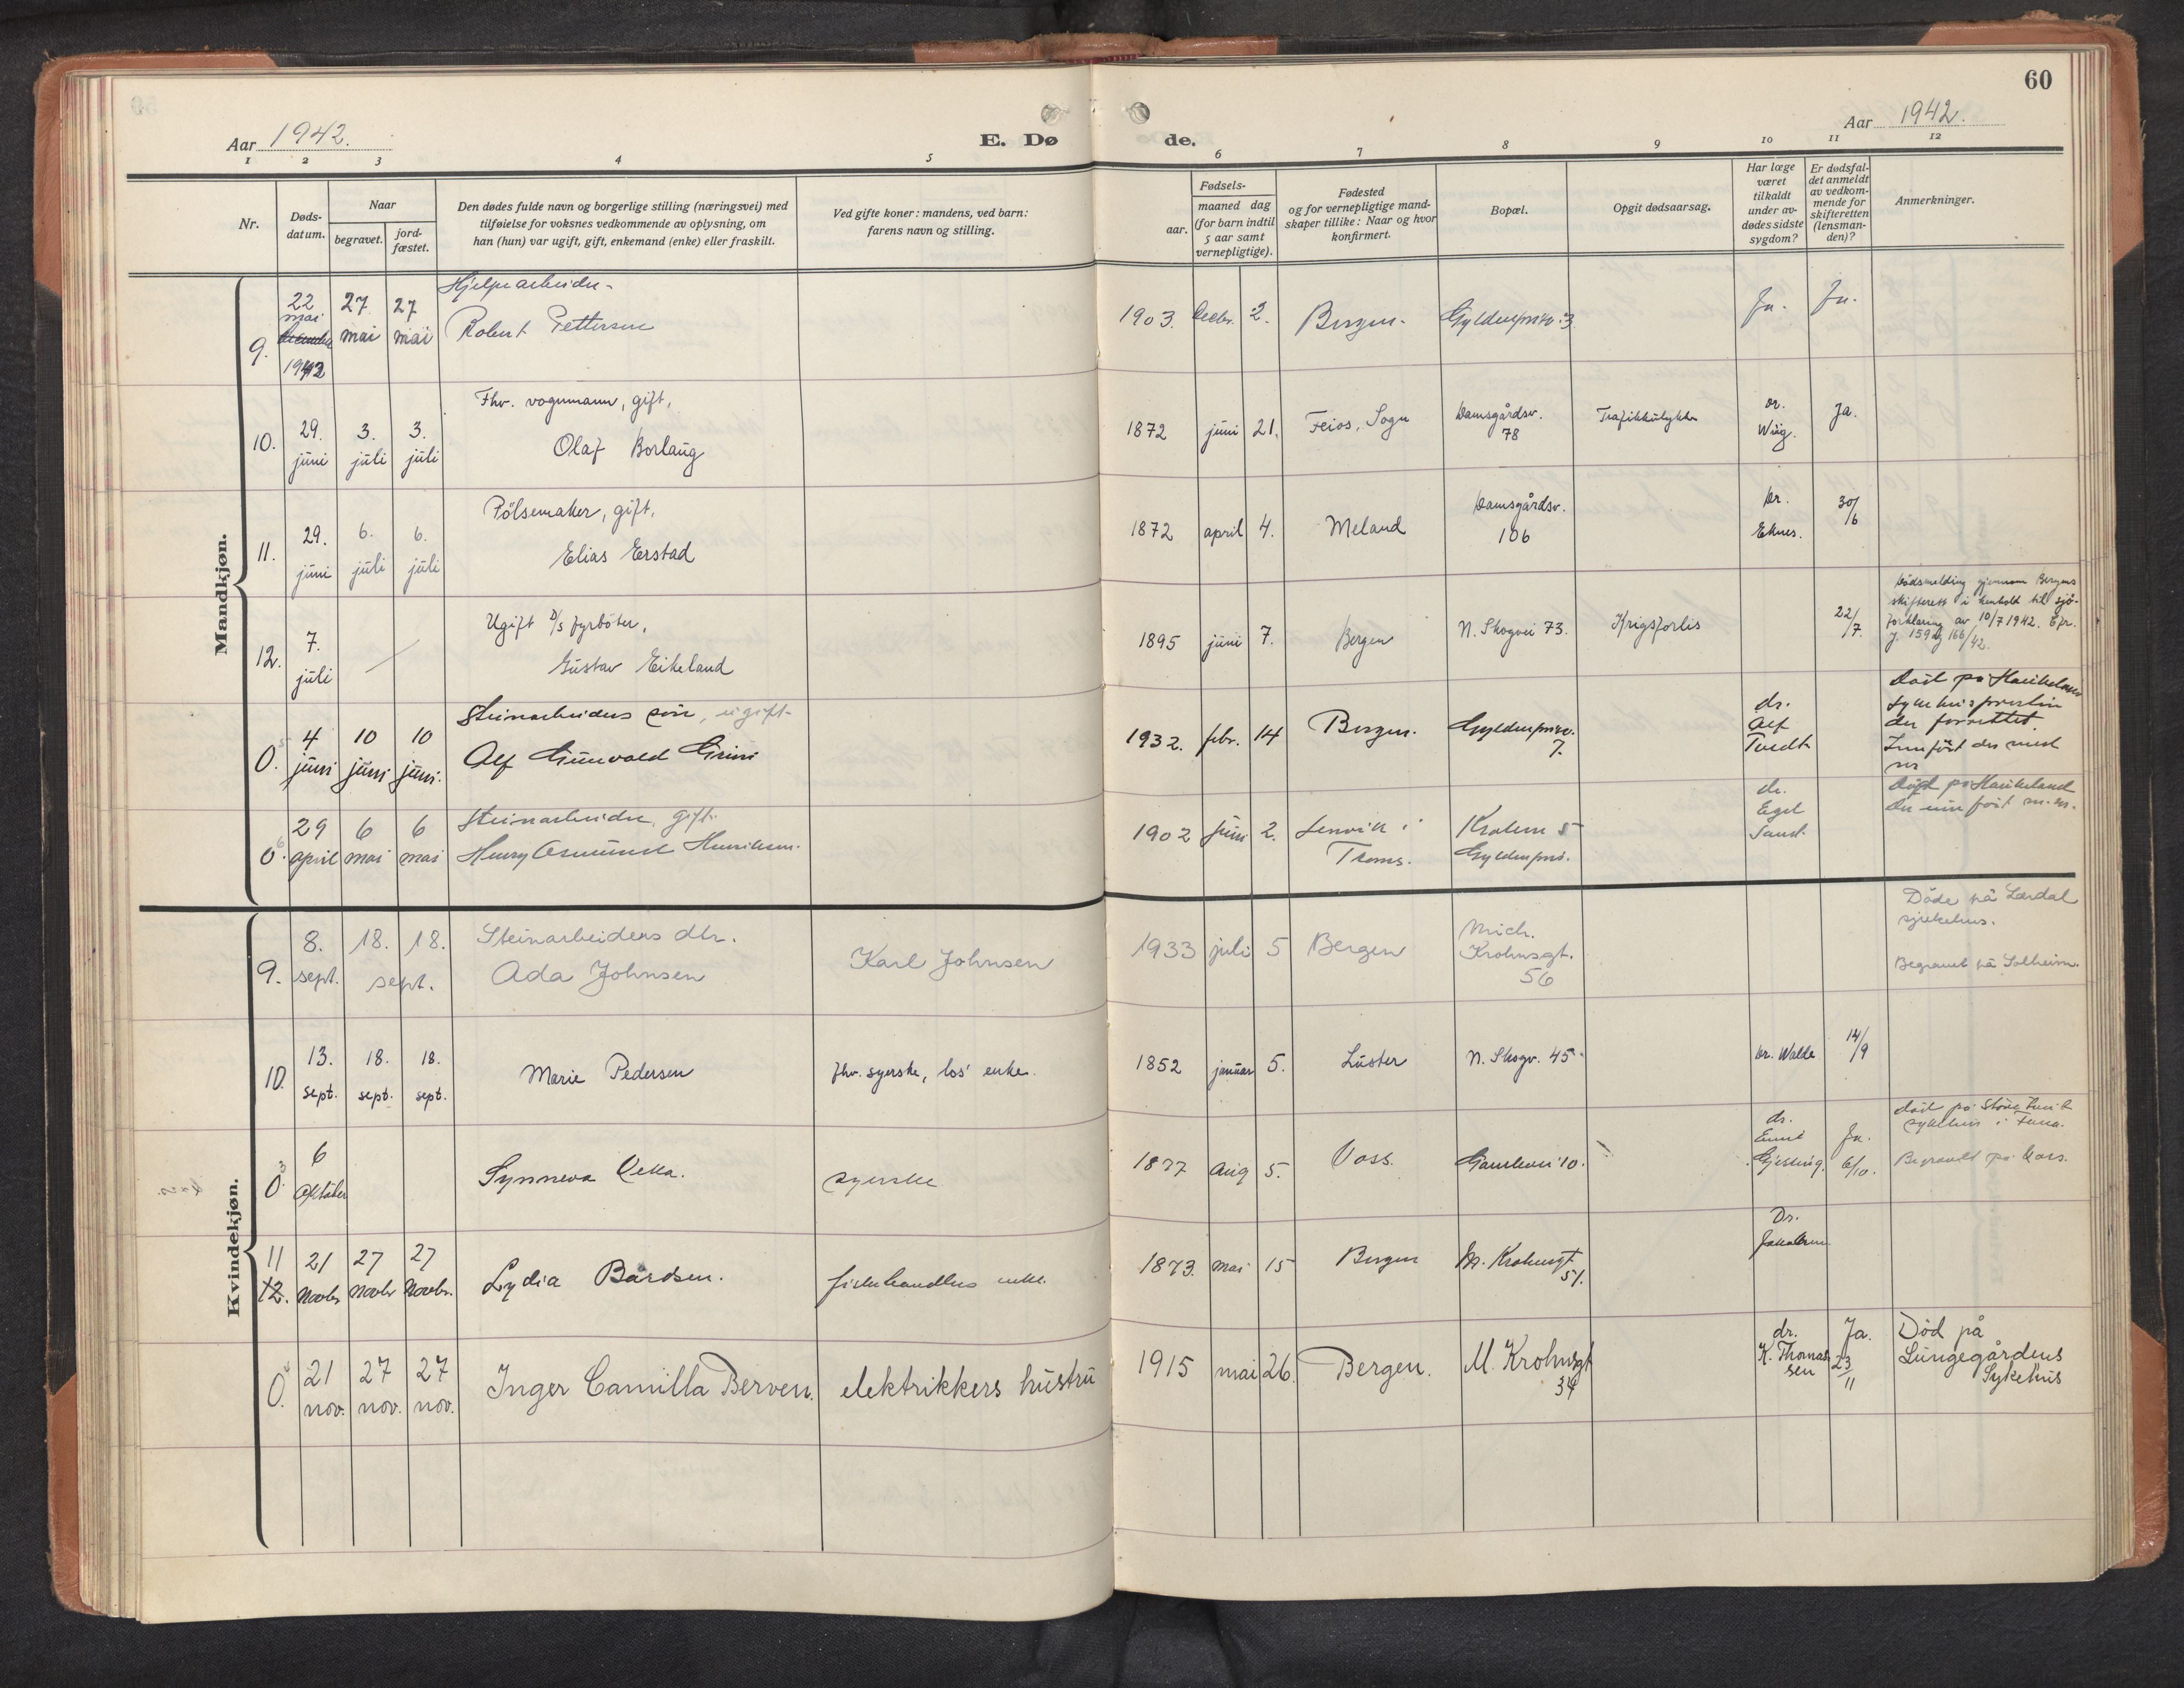 60
Aar 1942.
E. Dø
de.
Aar 1942.
1 2 3 4 5 6 7 8 9 10 11 12
Nr.
Døds-
datum.
Naar
begravet.
jord-
fæstet.
Den dødes fulde navn og borgerlige stilling (næringsvei) med
tilføielse for voksnes vedkommende av oplysning, om
han (hun) var ugift, gift, enkemand (enke) eller fraskilt.
Ved gifte koner: mandens, ved barn:
farens navn og stilling.
Fødsels-
aar.
maaned dag
(for barn indtil
5 aar samt
vernepligtige).
Fødested
og for vernepligtige mand-
skaper tillike: Naar og hvor
konfirmert.
Bopæl.
Opgit dødsaarsag.
Har læge
været
tilkaldt
under av-
dødes sidste
sygdom?
Er dødsfal-
det anmeldt
av vedkom-
mende for
skifteretten
(lensman-
den)?
Anmerkninger.
Mandkjøn.
9.
22
mai
1942
27
mai
27
mai
Hjelpearbeider.
Robert Pettersen
1903. Decbr. 2. Bergen. Gyldenprisv. 3
Ja. Ja.
10.
29.
juni
3.
juli
3.
juli
Fhv. vognmann, gift,
Olaf Borlaug
1872 juni 21. Feios, Sogn
Damsgårdsv.
78
Trafikkulykke
Dr.
Wiig.
Ja.
11.
29.
juni
6.
juli
6.
juli
Pölsemaker, gift,
Elias Erstad
1872 april 4. Meland
Damsgårdsv.
106
Dr.
Eknes.
30/6
12.
7.
juli
Ugift D/s fyrböter,
Gustav Eikeland
1895 juni 7. Bergen N. Skogvei 73. Krigsforlis
22/7.
Dødsmelding gjennom Bergens
skifterett i henhold til sjö-
forklaring av 10/7 1942.
j. 159 og 166/42.
0.
5
4
juni
10
juni
10
juni.
Steinarbeiders sön, ugift
Alf Gunvald Grini
1932. febr. 14 Bergen.
Gyldenprisv.
7.
dr.
Alf
Tvedt
Död på Haukeland
sykehus presten
der forrettet.
Innfört der med
nr
0.
6
29
april
6
mai
6
mai
Steinarbeider, gift.
Henry Asmund Henriksen.
1902 Juni 2.
Lenvik i
Troms.
Krohnv 5
Gyldenpris.
dr.
Egel
Sund.
Död på Haukeland
Kvindekjøn.
9.
8.
sept.
18. 18.
sept.
Steinarbeiders dtr.
Ada Johnsen
Karl Johnsen
1933 juli 5 Bergen
Mich.
Krohnsgt.
56
Döde på Lærdal
sjukehus.
Begravet på Solheim.
10.
13.
sept.
18.
sept.
18.
sept.
Marie Pedersen
fhv. syerske, los' enke.
1852 januar 5. Luster N. Skogv. 45
Dr. Walde
14/9
0.
3
6
Oktober
Synneva Rekve.
syerske
1877 Aug 5. Voss. 10.
dr.
Gjessing.
Ja.
6/10.
död på Store
sykehus i Fana.
Begravet på Voss.
11
12.
21
Novbr
27
Novbr
27
Novbr.
Lydia Bårdsen.
fiskehandlers enke.
1873. Mai 15 Bergen
M. Krohnsgt
51.
Dr.
Jakobsen
0.
4
21
nov.
27
nov.
27
nov.
Inger Camilla Berven.
elektrikkers hustru
1915 mai 26. Bergen.
M. Krohnsgt
34
dr.
K. Thomas-
sen
Ja.
23/11
Död på
Lungegårdens
Sykehus